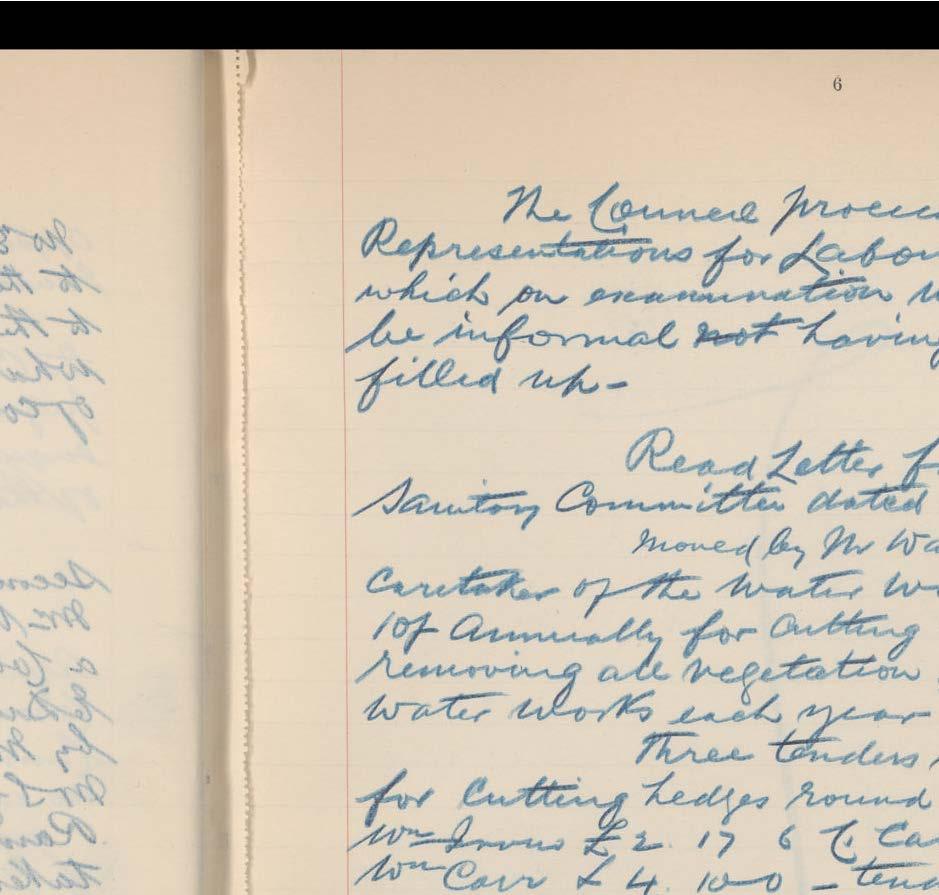 6
The Council proceed
Representations for Labou
which on examination w
be informal not having
filled up -
Read Letter f
Sanitory Committee dated
Moved by Mr Wa
Caretaker of the Water W
10/ Annually for Cutting
removing all vegetation
Water Works each year
Three tenders
for Cutting hedges round
Wm £2. 17 6 Ca
Wm Carr £ 4. 10-0 - tend